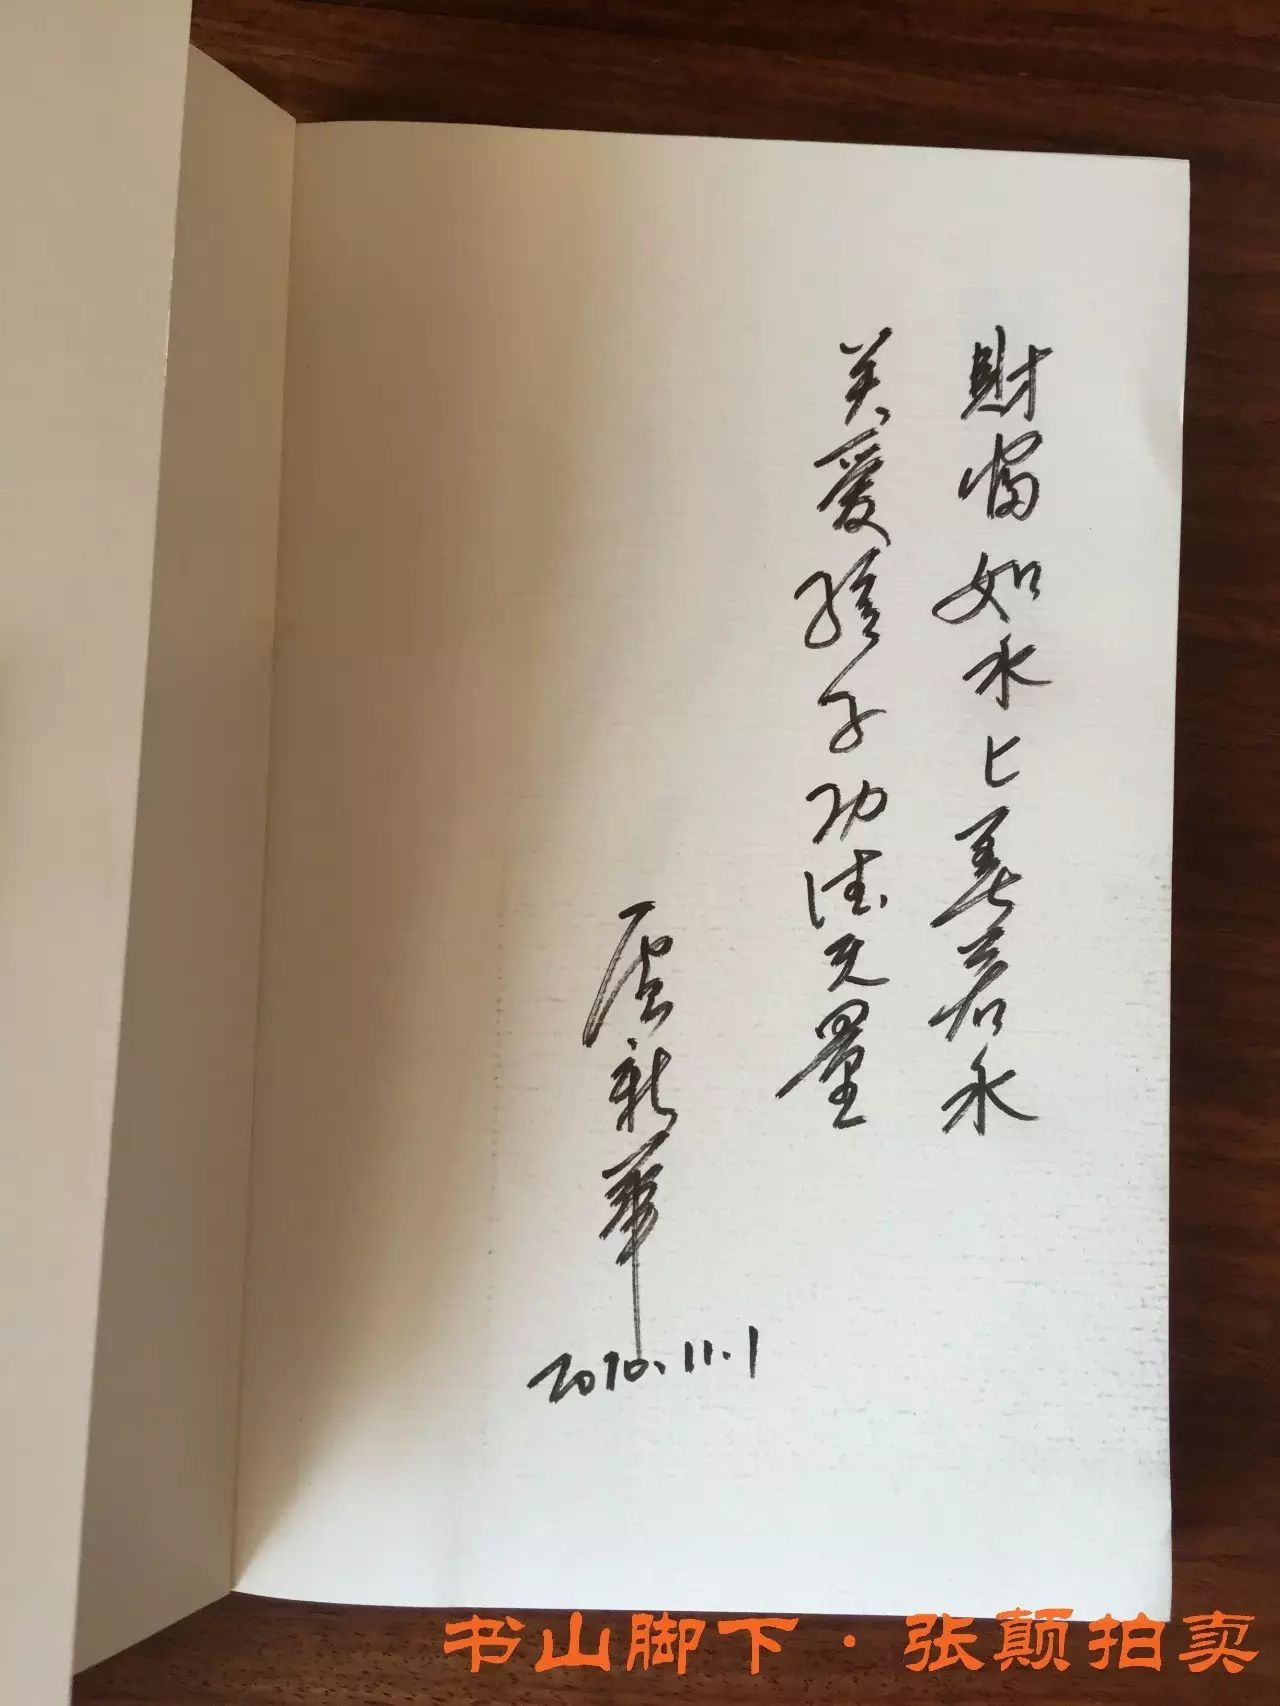 財富如水上善若水
关爱孩子功德无量
卢新华
2010.11.1
书山脚下·张颠拍卖